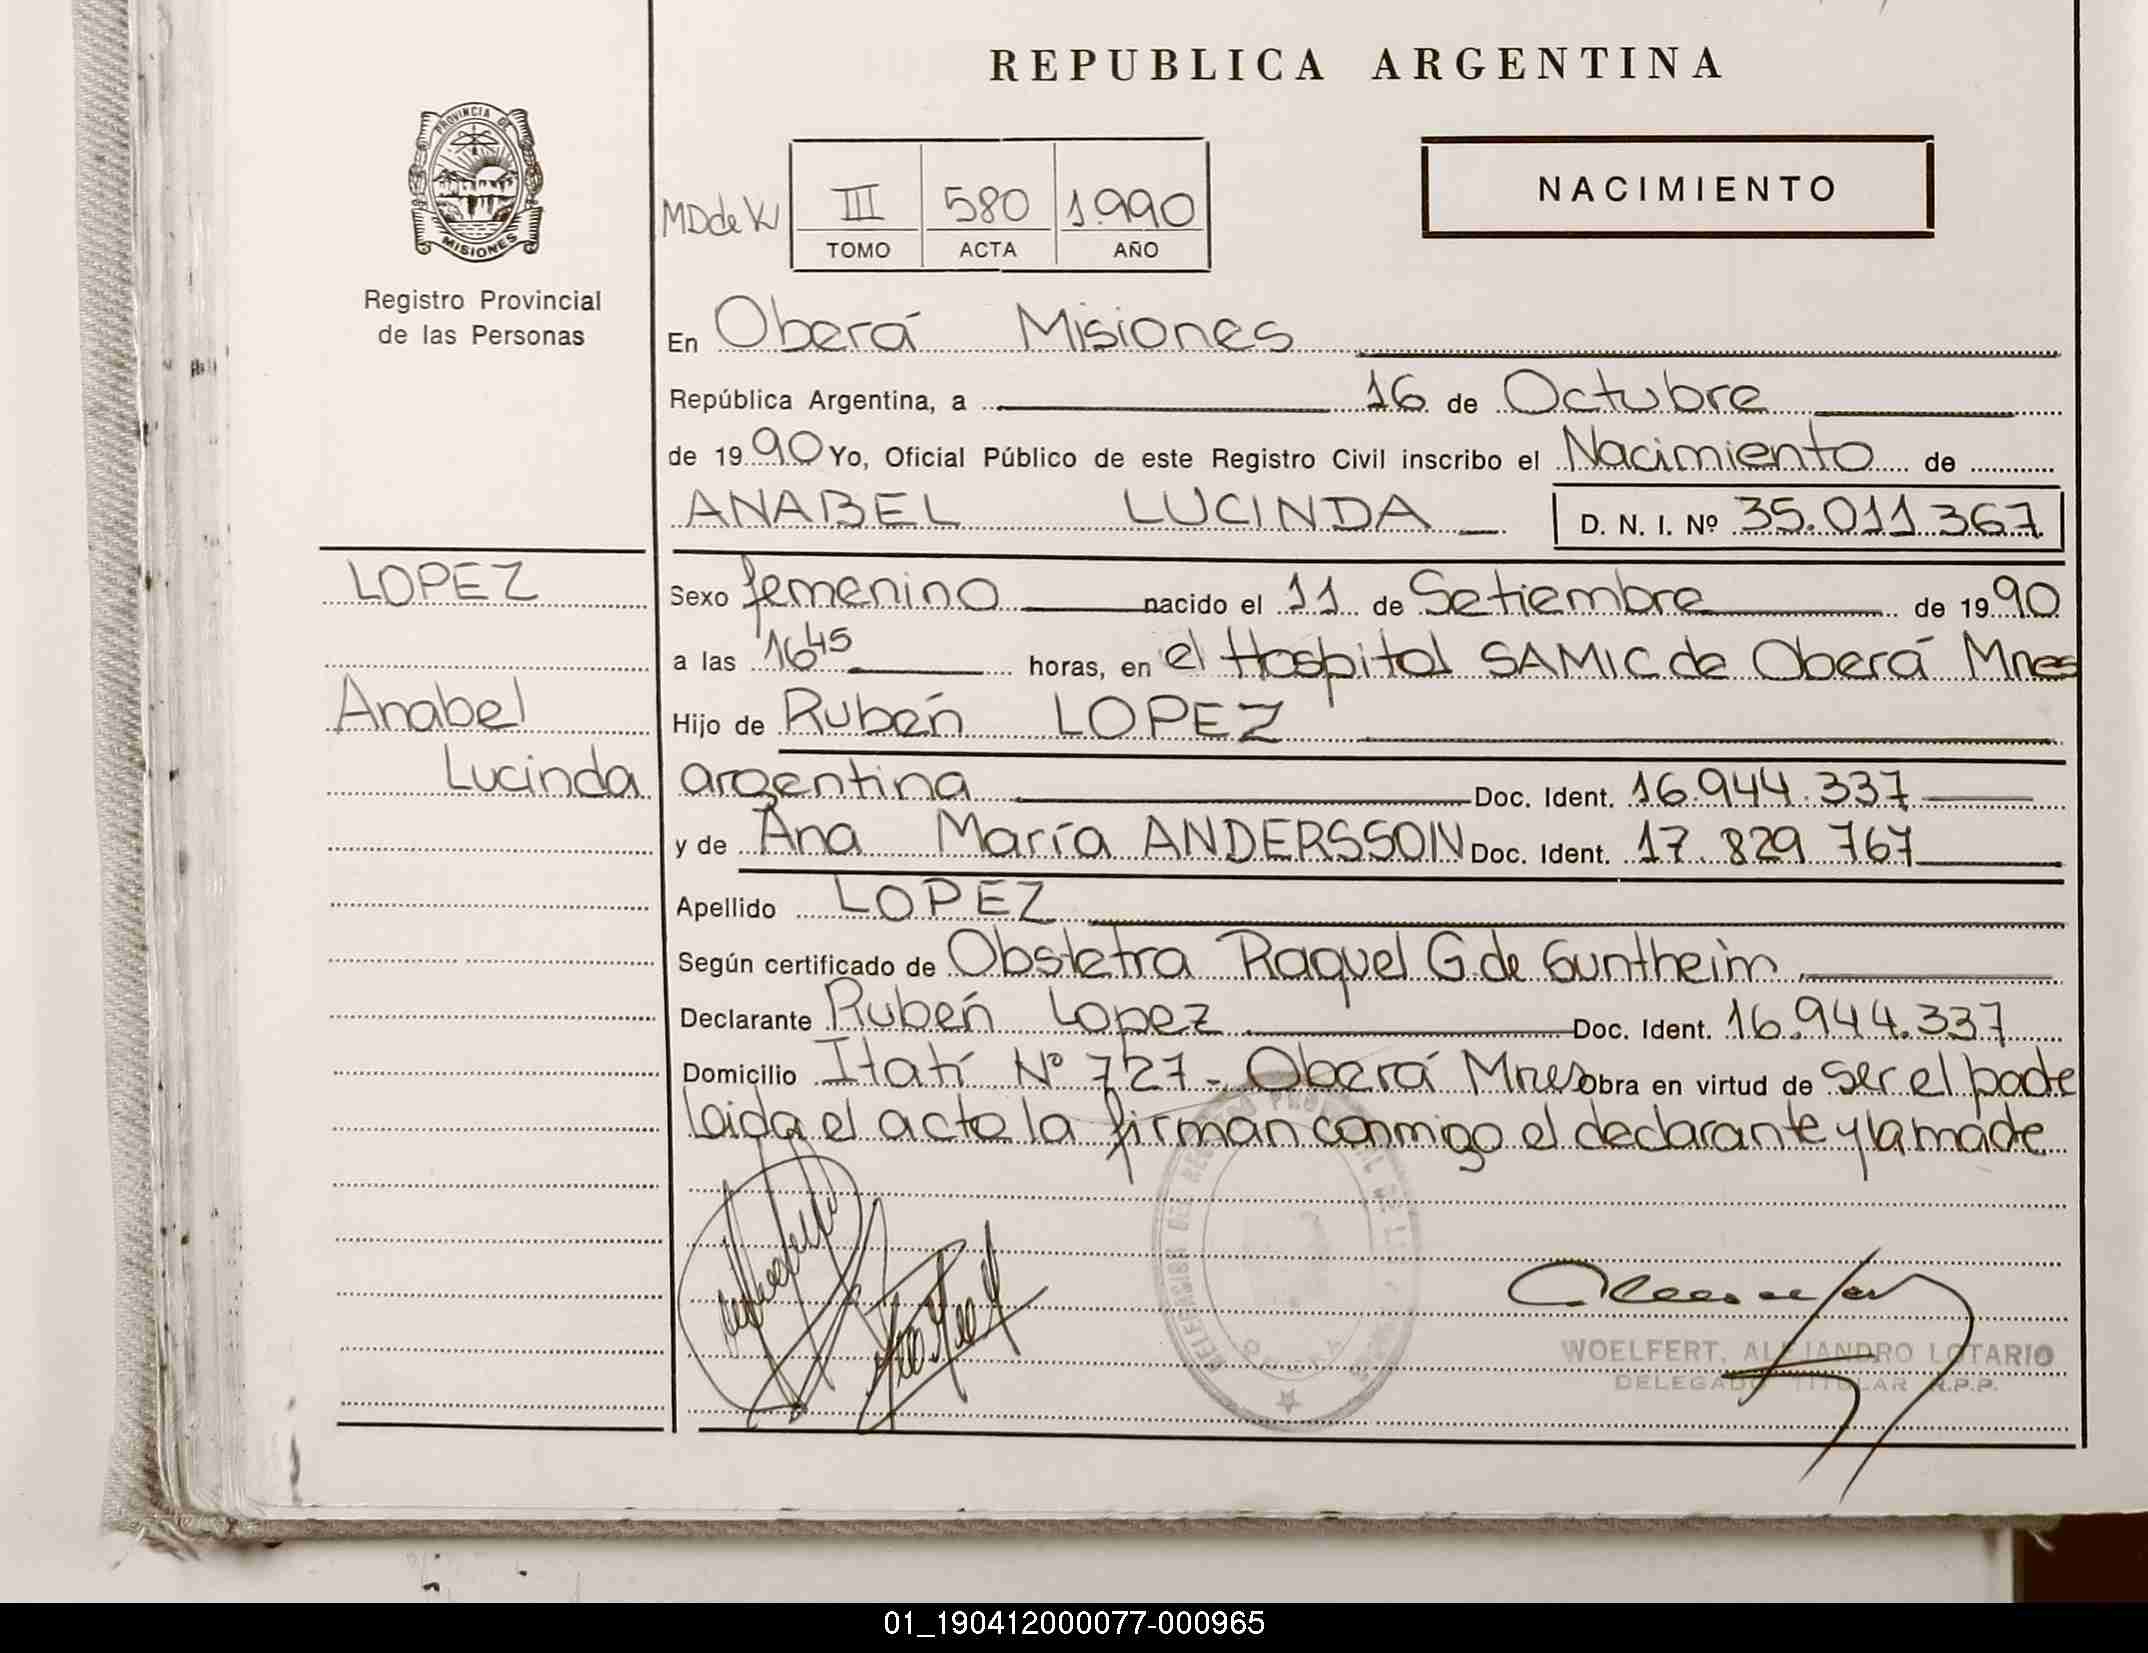 REPUBLICA ARGENTINA
PROVINCIA DE
MISIONES
Registro Provincial
de las Personas
MD de K
III 580 1.990
TOMO ACTA AÑO
NACIMIENTO
En Oberá Misiones
República Argentina, a 16 de Octubre
de 1990 Yo, Oficial Público de este Registro Civil inscribo el Nacimiento de
ANABEL LUCINDA D. N. I. Nº 35.011.367
LOPEZ
Anabel
Lucinda
Sexo femenino nacido el 11 de Setiembre de 1990
a las 16 45 horas, en el Hospital SAMIC de Oberá Mnes
Hijo de Rubén LOPEZ
argentina Doc. Ident. 16.944.337
y de Ana María ANDERSSON Doc. Ident. 17.829.767
Apellido LOPEZ
Según certificado de Obstetra Raquel G. de Guntheim
Declarante Rubén Lopez Doc. Ident. 16.944.337
Domicilio Itatí Nº 727 - Oberá Mnes obra en virtud de ser el padre
Leida el acta la firman conmigo el declarante y la madre
WOELFERT, ALEJANDRO LOTARIO
DELEGADO TITULAR R.P.P.
01_190412000077-000965